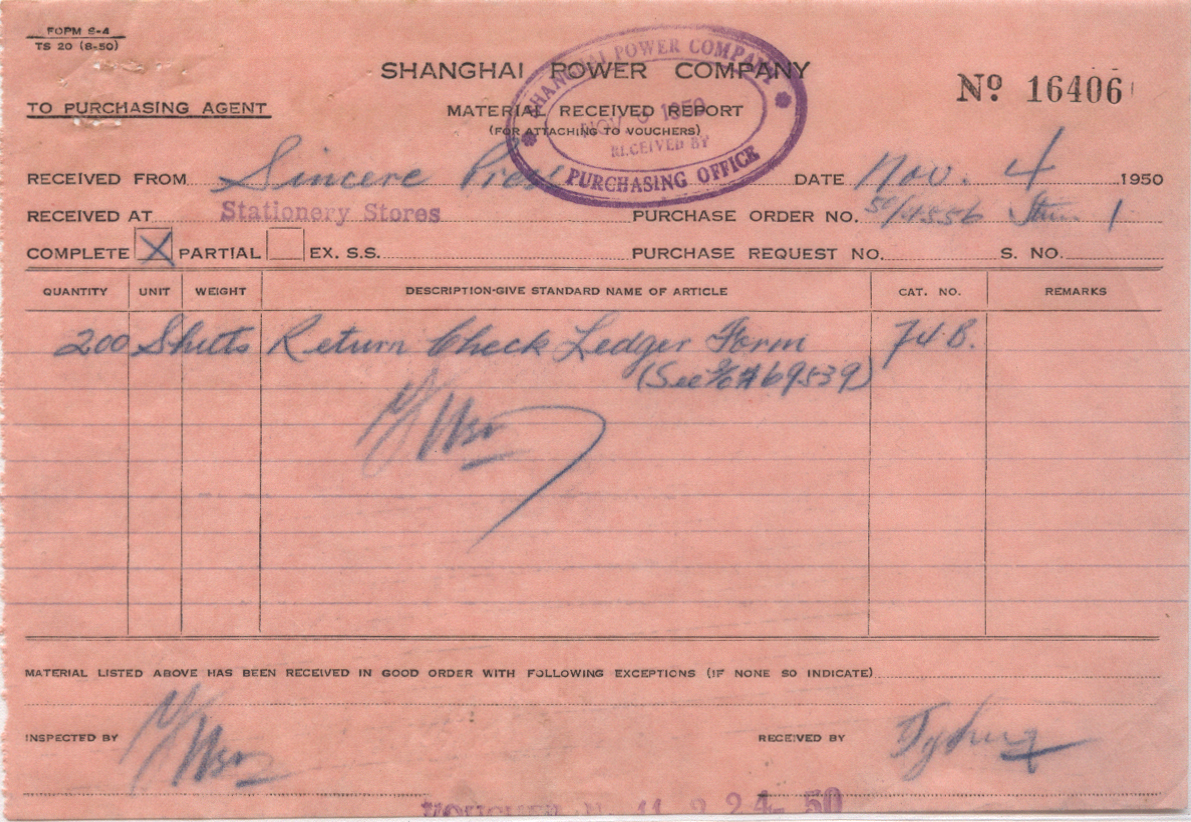 FORM S-4
TS 20 (8-50)
SHANGHAI POWER COMPANY
Nº 16406
TO PURCHASING AGENT
MATERIAL RECEIVED REPORT
(FOR ATTACHING TO VOUCHERS)
SHANGHAI POWER COMPANY
NOV 1950
RECEIVED BY
PURCHASING OFFICE
RECEIVED FROM Sincere Press DATE Nov. 4 1950
RECEIVED AT Stationery Stores PURCHASE ORDER NO. 50/4556 Item 1
COMPLETE X PARTIAL EX. S.S. PURCHASE REQUEST NO. S. NO.
QUANTITY UNIT WEIGHT DESCRIPTION-GIVE STANDARD NAME OF ARTICLE CAT. NO. REMARKS
200 Shtts Return Check Ledger Form 74-B.
(See #69539)
MATERIAL LISTED ABOVE HAS BEEN RECEIVED IN GOOD ORDER WITH FOLLOWING EXCEPTIONS (IF NONE SO INDICATE)
INSPECTED BY RECEIVED BY
VOUCHER N 11 2 24- 50